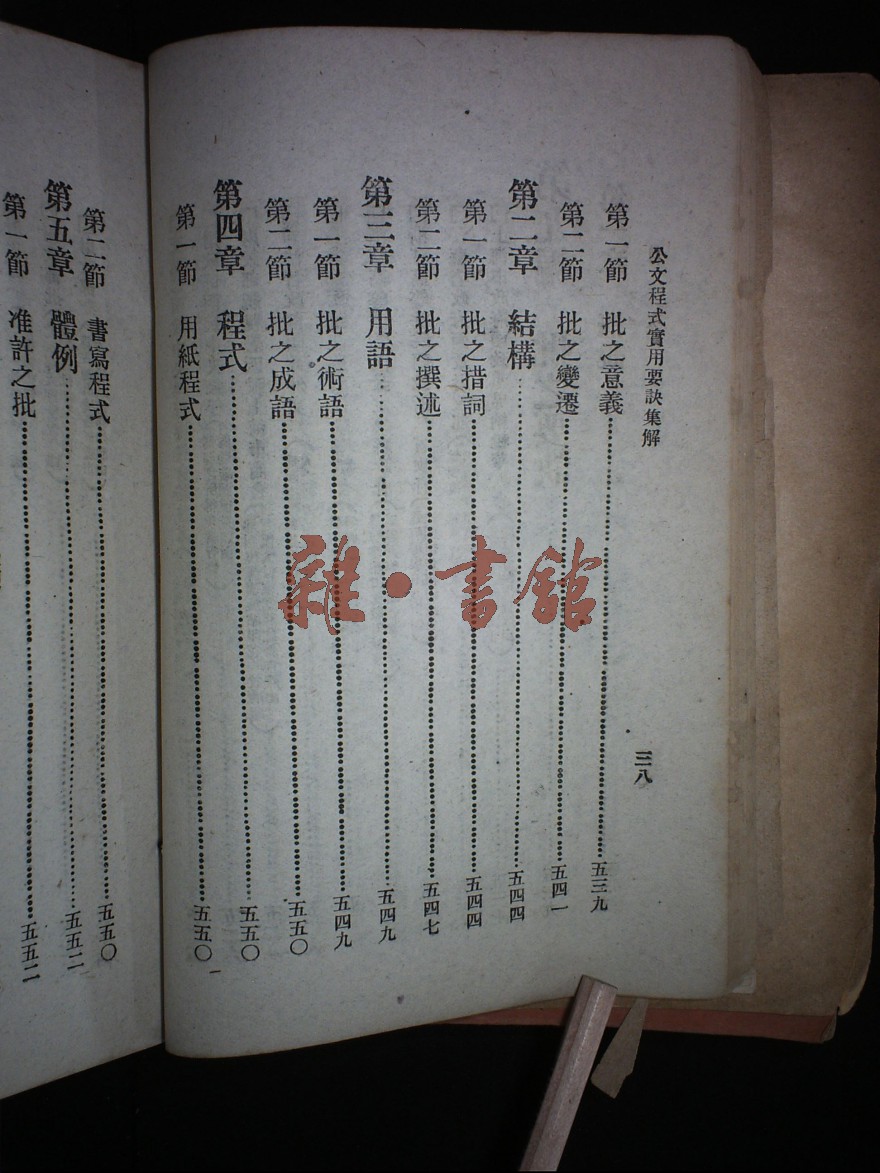 公文程式實用要訣集解
三八
第一節 批之意義 五三九
第二節 批之變遷 五四一
第二章 結構 五四四
第一節 批之措詞 五四四
第二節 批之撰述 五四七
第三章 用語 五四九
第一節 批之術語 五四九
第二節 批之成語 五五〇
第四章 程式 五五〇
第一節 用紙程式 五五〇
第二節 書寫程式 五五〇
第五章 體例 五五二
第一節 准許之批 五五二
雜·書館